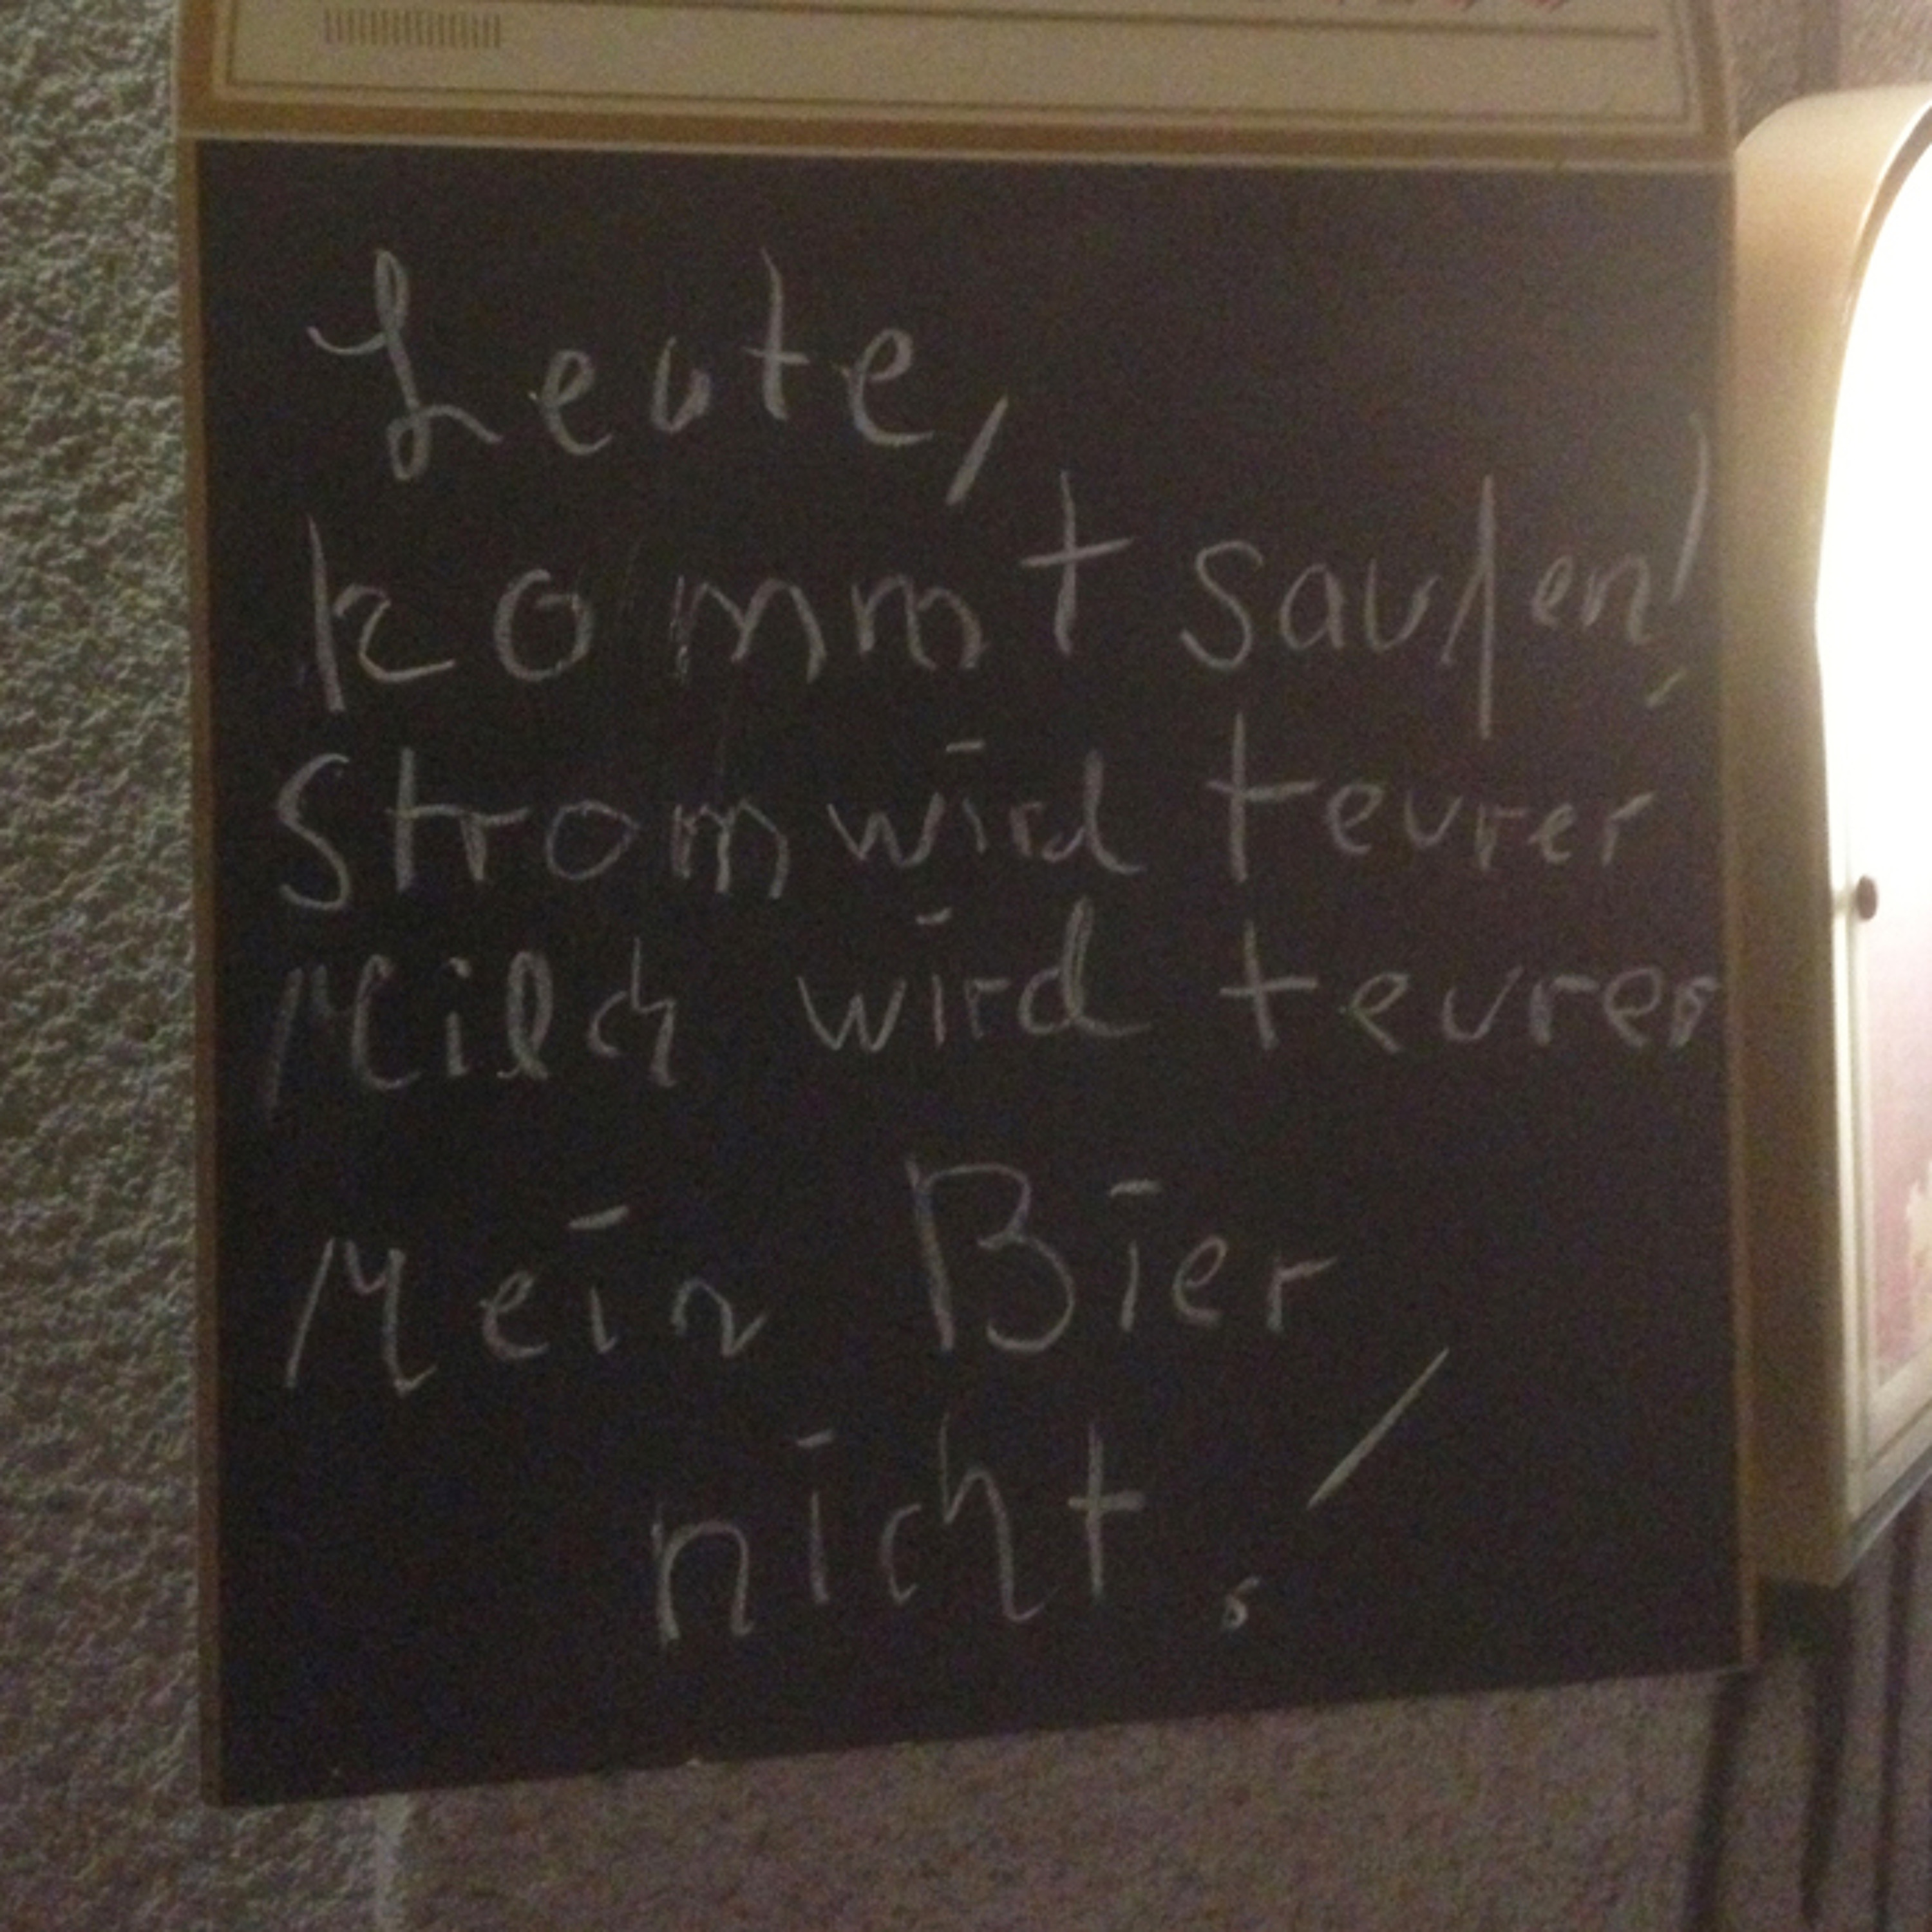 Leute,
kommt saufen!
Strom wird teurer
Milch wird teurer
Mein Bier
nicht!